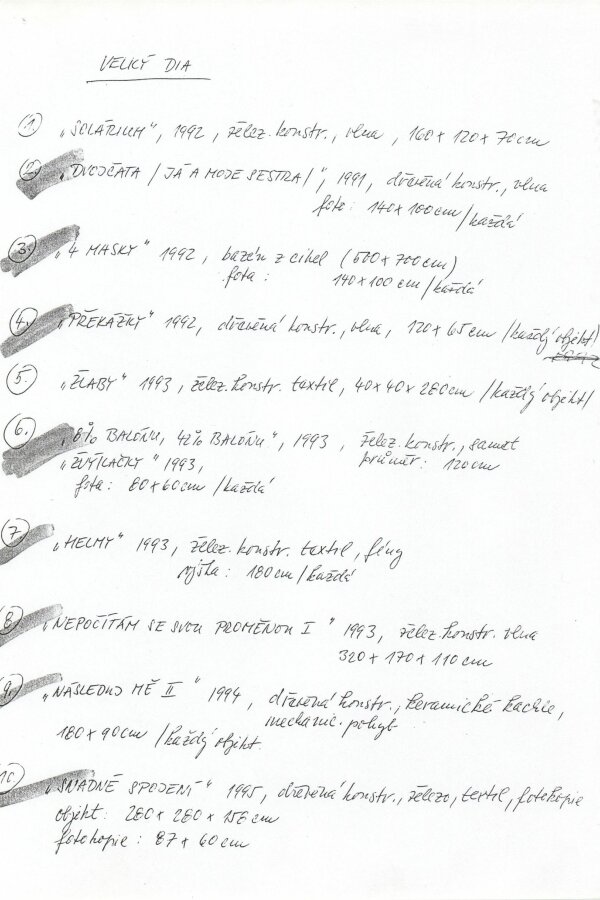 VELKÝ DIA
1. „SOLÁRIUM", 1992, želez. konstr., vlna, 160 x 120 x 70cm
2. „DVOJČATA /JÁ A MOJE SESTRA/", 1991, dřevěná konstr., vlna
foto: 140 x 100cm /každá
3. „4 MASKY" 1992, bazén z cihel (500 x 700cm)
fota: 140 x 100 cm /každá
4. „PŘEKÁŽKY" 1992, dřevěná konstr., vlna, 120 x 65 cm /každý objekt/
5. „ŽLABY" 1993, želez. konstr. textil, 40 x 40 x 280cm /každý objekt/
6. BALÓNU, 42% BALÓNU", 1993, želez. konstr., samet
průměr: 120cm
„ŽVÝKAČKY" 1993,
fota: 80 x 60cm /každá
7. „HELMY" 1993, želez. konstr. textil, fény
výška: 180cm /každá
8. „NEPOČÍTÁM SE SVOU PROMĚNOU I" 1993, želez. konstr. vlna
320 x 170 x 110 cm
9. „NÁSLEDUJ MĚ II" 1994, dřevěná konstr., keramické kachle,
mechanic. pohyb
180 x 90cm /každý objekt.
10 „SNADNÉ SPOJENÍ" 1995, dřevěná konstr., železo, textil, fotokopie
objekt: 280 x 280 x 158 cm
fotokopie: 87 x 60cm